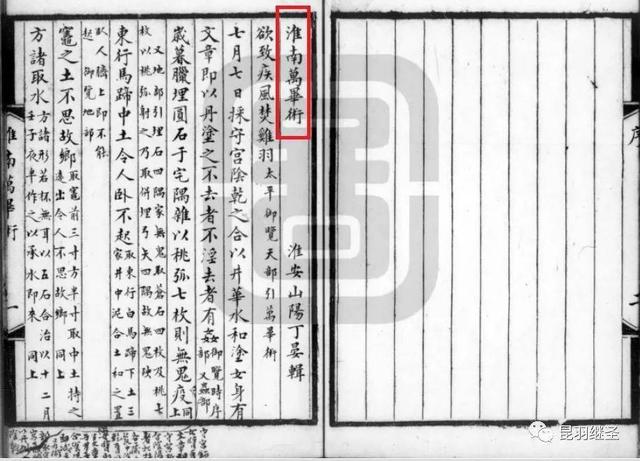 序
淮南萬畢術
淮安山陽丁晏輯
欲致疾風焚雞羽太平御覽天部引萬畢術
七月七日採守宮陰乾之合以井華水和塗女身有
文章即以丹塗之不去者不淫去者有姦御覽時序部又蟲部
歲暮臘埋圓石于宅隅雜以桃弧七枚則無鬼疫同上
又地部引埋石四隅家無鬼取蒼石四枚及桃七
枚以桃弧射之乃取併埋弓矢四隅故無鬼殃
東行馬蹄中土令人卧不起取東行白馬蹄下土三家井中泥合土和之置
臥人臍上即不能
起御覽地部
竈之土不思故鄉取竈前三寸方半寸取中土持之遠出令人不思故鄉同上
方諸取水方諸形若杯無耳以五石合治以十二月壬子夜半作之以承水即來同上
淮南萬畢術
一
昆羽继圣